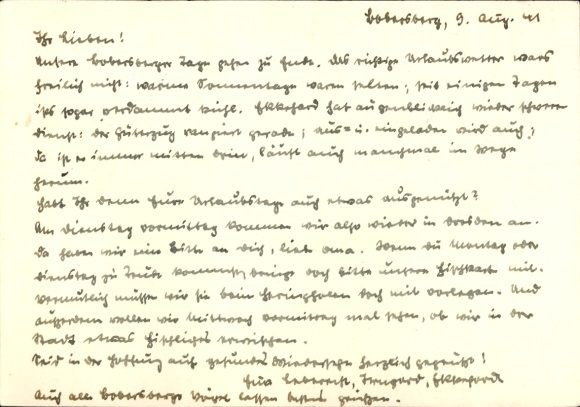 Bobersberg, 9. Aug. 41
Ihr Lieben!
Unsere Bobersberger Tage gehen zu Ende. Das richtige Urlaubswetter wars
freilich nicht: warme Sonnentage waren selten; seit einigen Tagen
ists sogar verdammt kühl. Ekkehard hat augenblicklich wieder schweren
Dienst: der Güterzug rangiert gerade; aus= u. eingeladen wird auch;
da ist er immer mitten drin, läuft auch manchmal im Wege
herum.
Habt Ihr denn Eure Urlaubstage auch etwas ausgenützt?
Am Dienstag vormittag kommen wir also wieder in Dresden an.
Da haben wir eine Bitte an Dich, liebe Oma. Wenn du Montag oder
Dienstag zu Trude kommst, bringe doch bitte unsere Fischkarte mit.
Vermutlich müssen wir sie beim Heringholen doch mit vorlegen. Und
außerdem wollen wir Mittwoch vormittag mal sehen, ob wir in der
Stadt etwas Fischliches erwischen.
Seid in der Hoffnung auf gesundes Wiedersehn herzlich gegrüßt!
Eure Irmgard, Ekkehard
Auch alle Bobersberger Vögel lassen bestens grüßen.